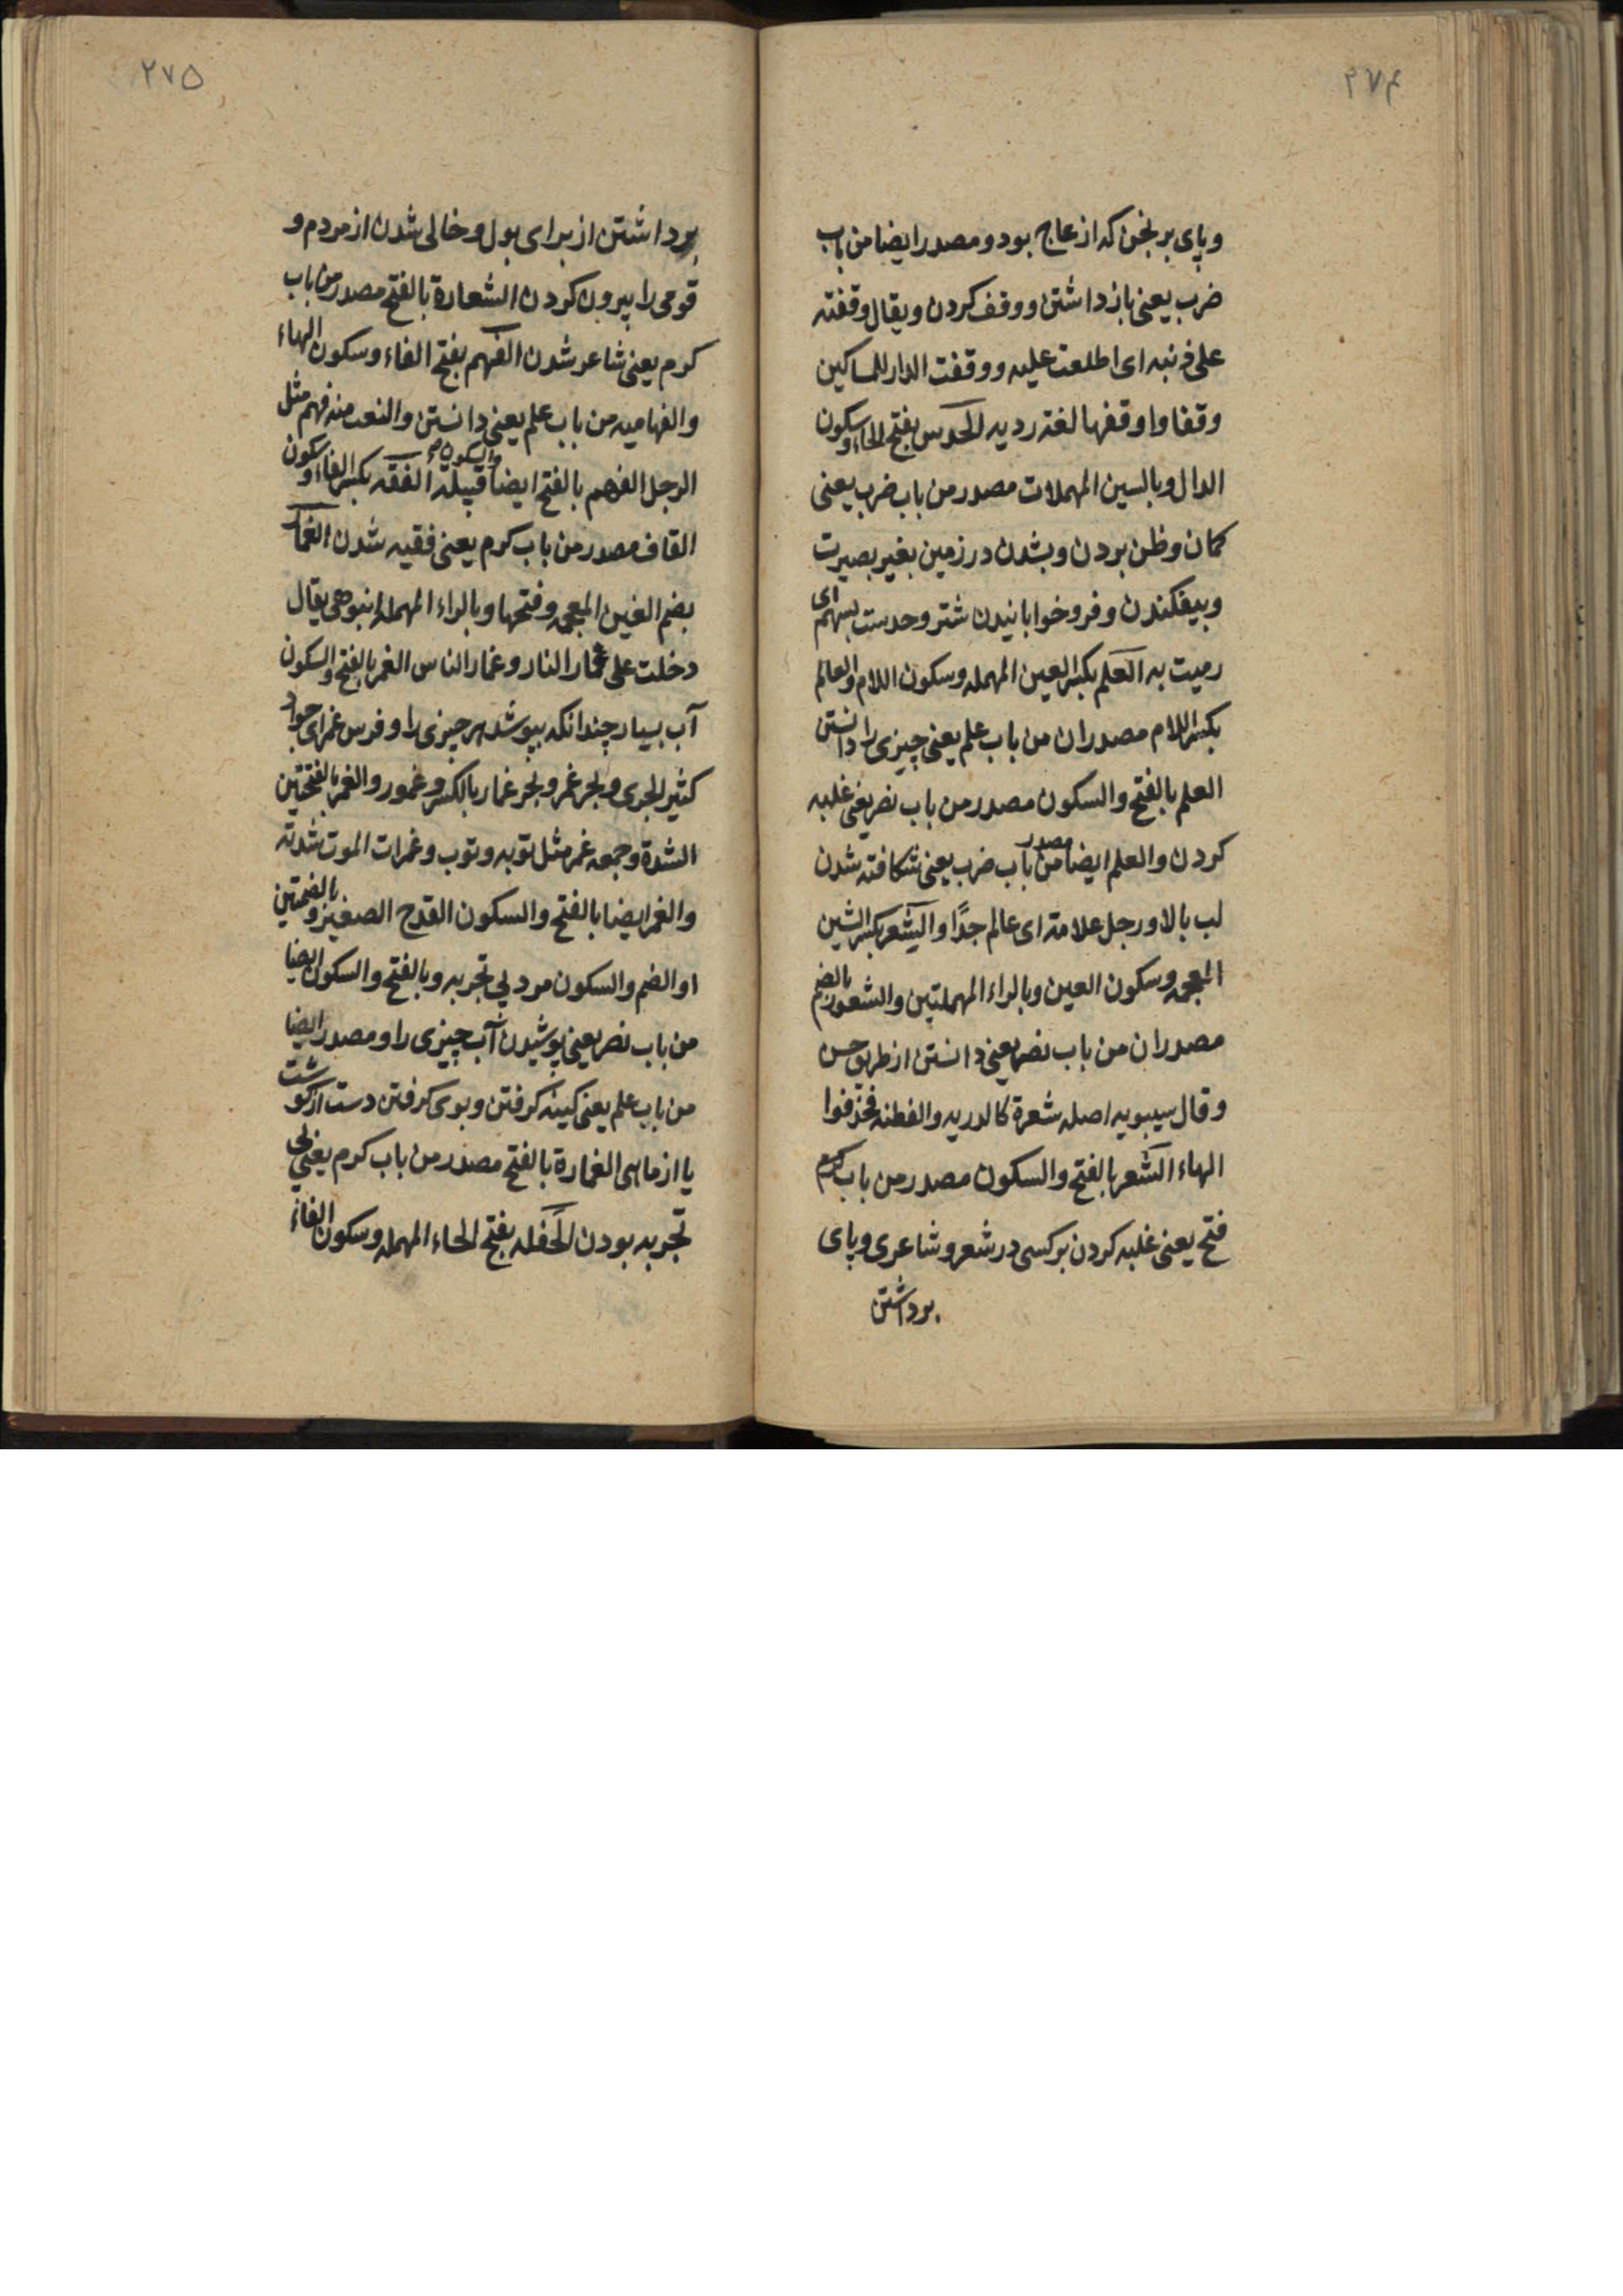 ۲۷۴
وپای برنجن که از عاج بود ومصدر ایضا من باب
ضرب یعنی بازداشتن ووقف کردن ویقال وقفته
علی ذنبه ای اطلعت علیه ووقفت الدار للمساکین
وقفا واوقفها لغة ردیه الحدس بفتح الحاء وسکون
الدال وبالسین المهملات مصدر من باب ضرب یعنی
کمان وظن بردن وبشدن در زمین بغیر بصیرت
وبیفکندن وفروخوابانیدن شتر وحدست بسهم ای
رمیت به العلم بکسر العین المهمله وسکون اللام والعالم
بکسر اللام مصدران من باب علم یعنی چیزی را دانستن
العلم بالفتح والسکون مصدر من باب نصر یعنی غلبه
کردن والعلم ایضا مصدر من باب ضرب یعنی شکافته شدن
لب بالا ورجل علامة ای عالم جدًا والشعر بکسر الشین
المعجمه وسکون العین وبالراء المهملتین والشعور بالضم
مصدران من باب نصر یعنی دانستن از طریق حس
وقال سیبویه اصله شعرة کالدریه والفطنه فحذفوا
الهاء الشعر بالفتح والسکون مصدر من باب کرم
فتح یعنی غلبه کردن برکسی در شعر وشاعری وپای
برداشتن
۲۷۵
برداشتن از برای بول وخالی شدن از مردم و
قومی را بیرون کردن الشعارة بالفتح مصدر من باب
کرم یعنی شاعر شدن الفهم بفتح الفاء وسکون الهاء
والفهامیه من باب علم یعنی دانستن والنعت منه فهم مثل
الرجل الفهم بالفتح والسکون ایضا قبیلة الفقه بکسر الفاء وسکون
القاف مصدر من باب کرم یعنی فقیه شدن الغمار
بضم الغین المعجمه وفتحها وبالراء المهمله انبوهی یقال
دخلت علی غمار النار وغمار الناس الغمر بالفتح والسکون
آب بسیار چندانکه بپوشد هر چیزی را وفرس غمر ای جواد
کثیر الجری وبحر غمر وبحر غمار بالکسر وغمور والغمر بالفتحتین
الشدة وجمعه غمر مثل توبه وتوب وغمرات الموت شدته
والغمر ایضا بالفتح والسکون القدح الصغیر وبالضمتین
او الضم والسکون مرد بی تجربه وبالفتح والسکون ایضا
من باب نصر یعنی پوشیدن آب چیزی را ومصدر ایضا
من باب علم یعنی کینه کرفتن وبوی کرفتن دست از کوشت
یا از ماهی الغمارة بالفتح مصدر من باب کرم یعنی بی
تجربه بودن الحفله بفتح الحاء المهمله وسکون الفاء